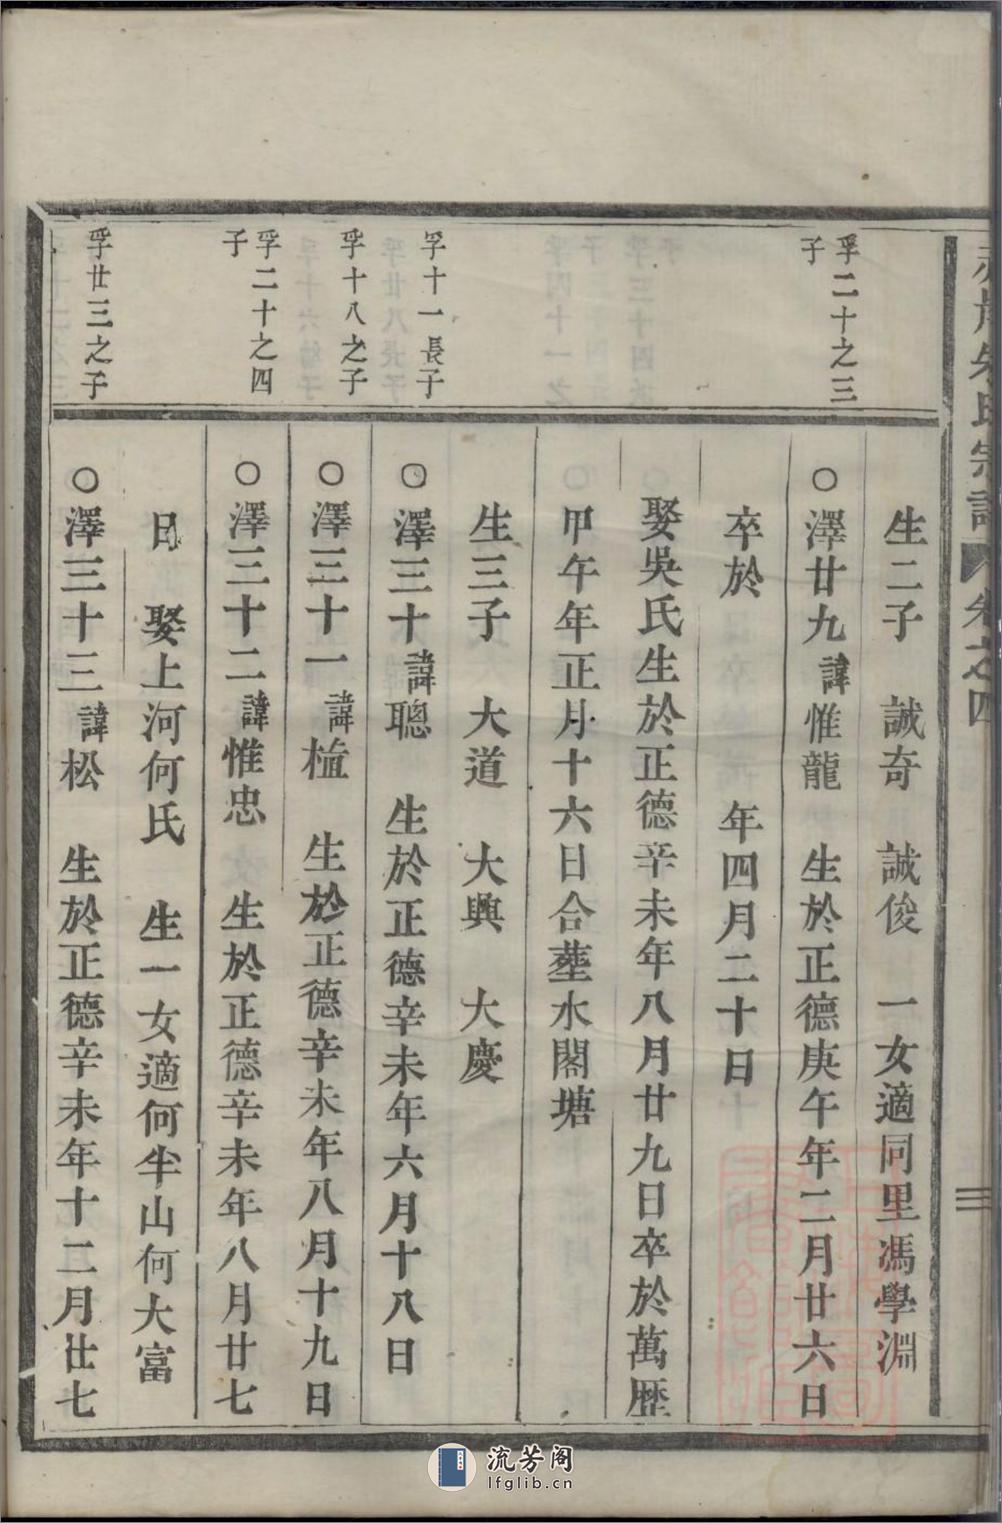 朱氏宗譜 卷之四
生二子 誠奇 誠俊 一女適同里馮學淵
孚二十之三子
○澤廿九諱惟龍 生於正德庚午年二月廿六日
卒於 年四月二十日
娶吳氏生於正德辛未年八月廿九日卒於萬歷
甲午年正月十六日合塟水閣塘
生三子 大道 大興 大慶
孚十一長子
○澤三十諱聰 生於正德辛未年六月十八日
孚十八之子
○澤三十一諱楦 生於正德辛未年八月十九日
孚二十之四子
○澤三十二諱惟忠 生於正德辛未年八月廿七
日 娶上河何氏 生一女適何半山何大富
孚廿三之子
○澤三十三諱松 生於正德辛未年十二月廿七
流芳阁
lfglib.cn